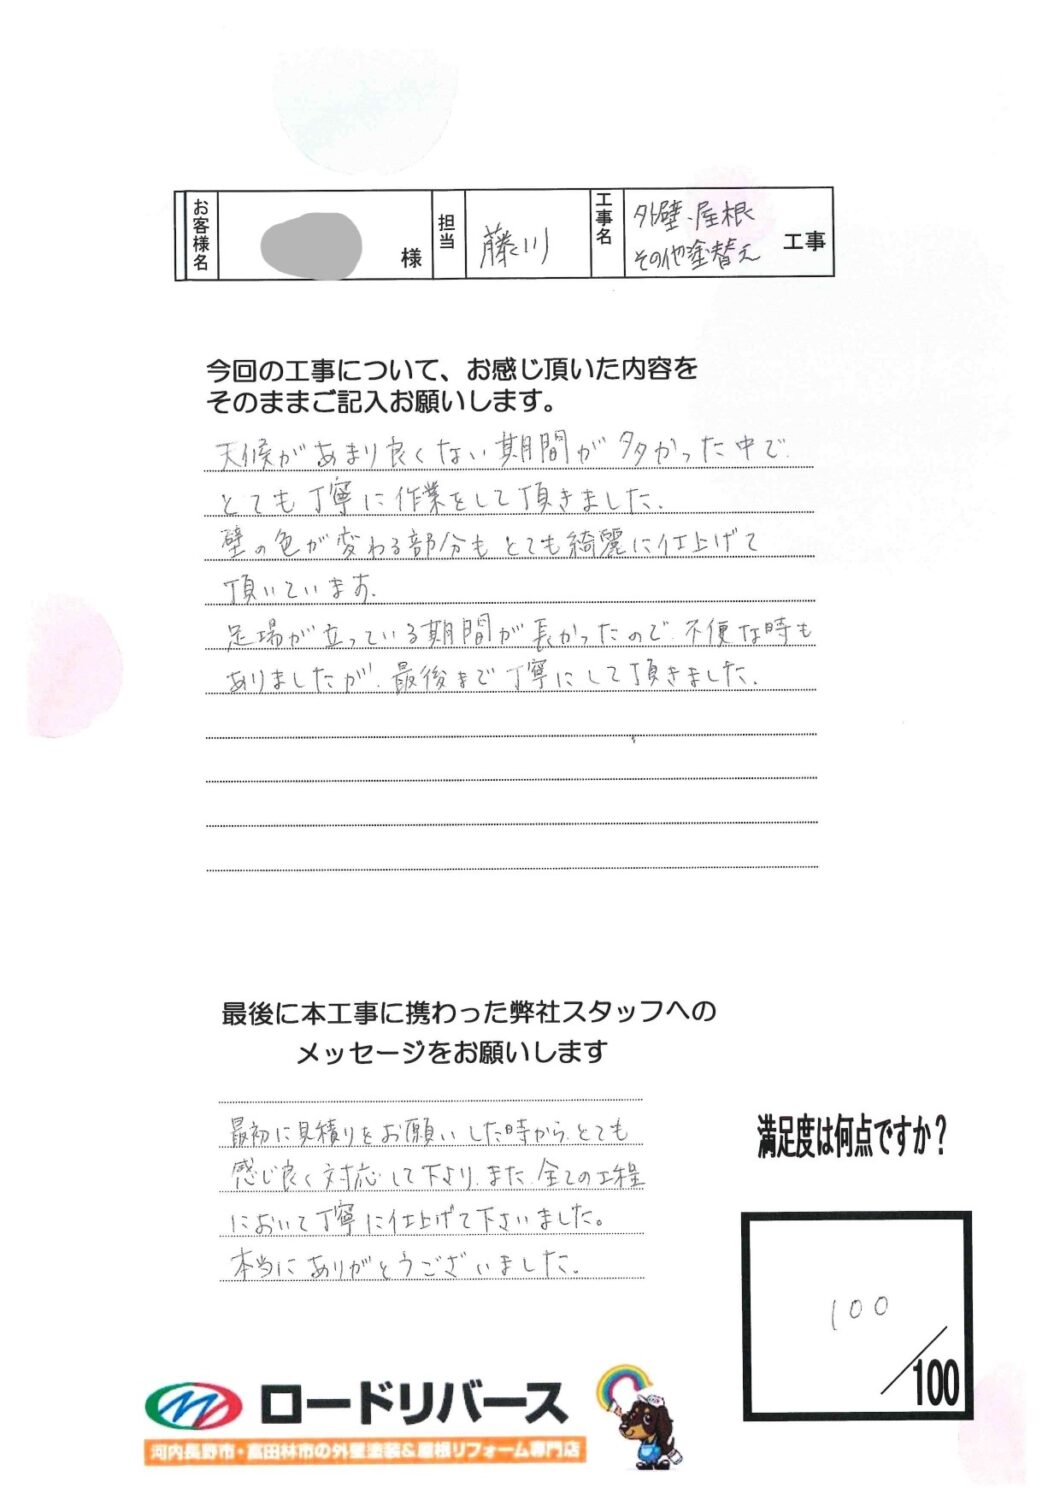 お客様名 様 担当 藤川 工事名 外壁、屋根 その他塗替え 工事
今回の工事について、お感じ頂いた内容を
そのままご記入お願いします。
天候があまり良くない期間が多かった中で、
とても丁寧に作業をして頂きました。
壁の色が変わる部分もとても綺麗に仕上げて
頂いています。
足場が立っている期間が長かったので、不便な時も
ありましたが、最後まで丁寧にして頂きました。
最後に本工事に携わった弊社スタッフへの
メッセージをお願いします
最初に見積りをお願いした時から、とても
感じ良く対応して下より、また、全ての工程
において丁寧に仕上げて下さいました。
本当にありがとうございました。
満足度は何点ですか?
100
/100
ロードリバース
河内長野市・富田林市の外壁塗装&屋根リフォーム専門店